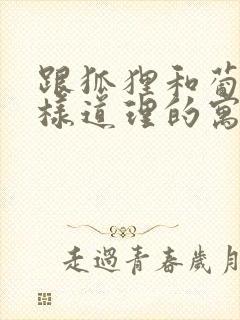 跟狐狸和葡
样道理的寓
走過青春歲月